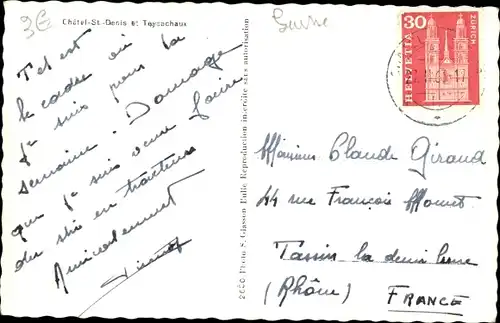 3€
Suisse
Châtel-St-Denis et Teysachaux
Tel est
le cadre où
je suis pour la
semaine. Dommage
que je suis venu faire
du ski en
Amicalement
2600 Photo S. Glasson Bulle Reproduction interdite sans autorisation
HELVETIA
30
ZÜRICH
Monsieur Claude Giraud
44 rue François Mermet
Tassin la demi lune
(Rhône)
FRANCE